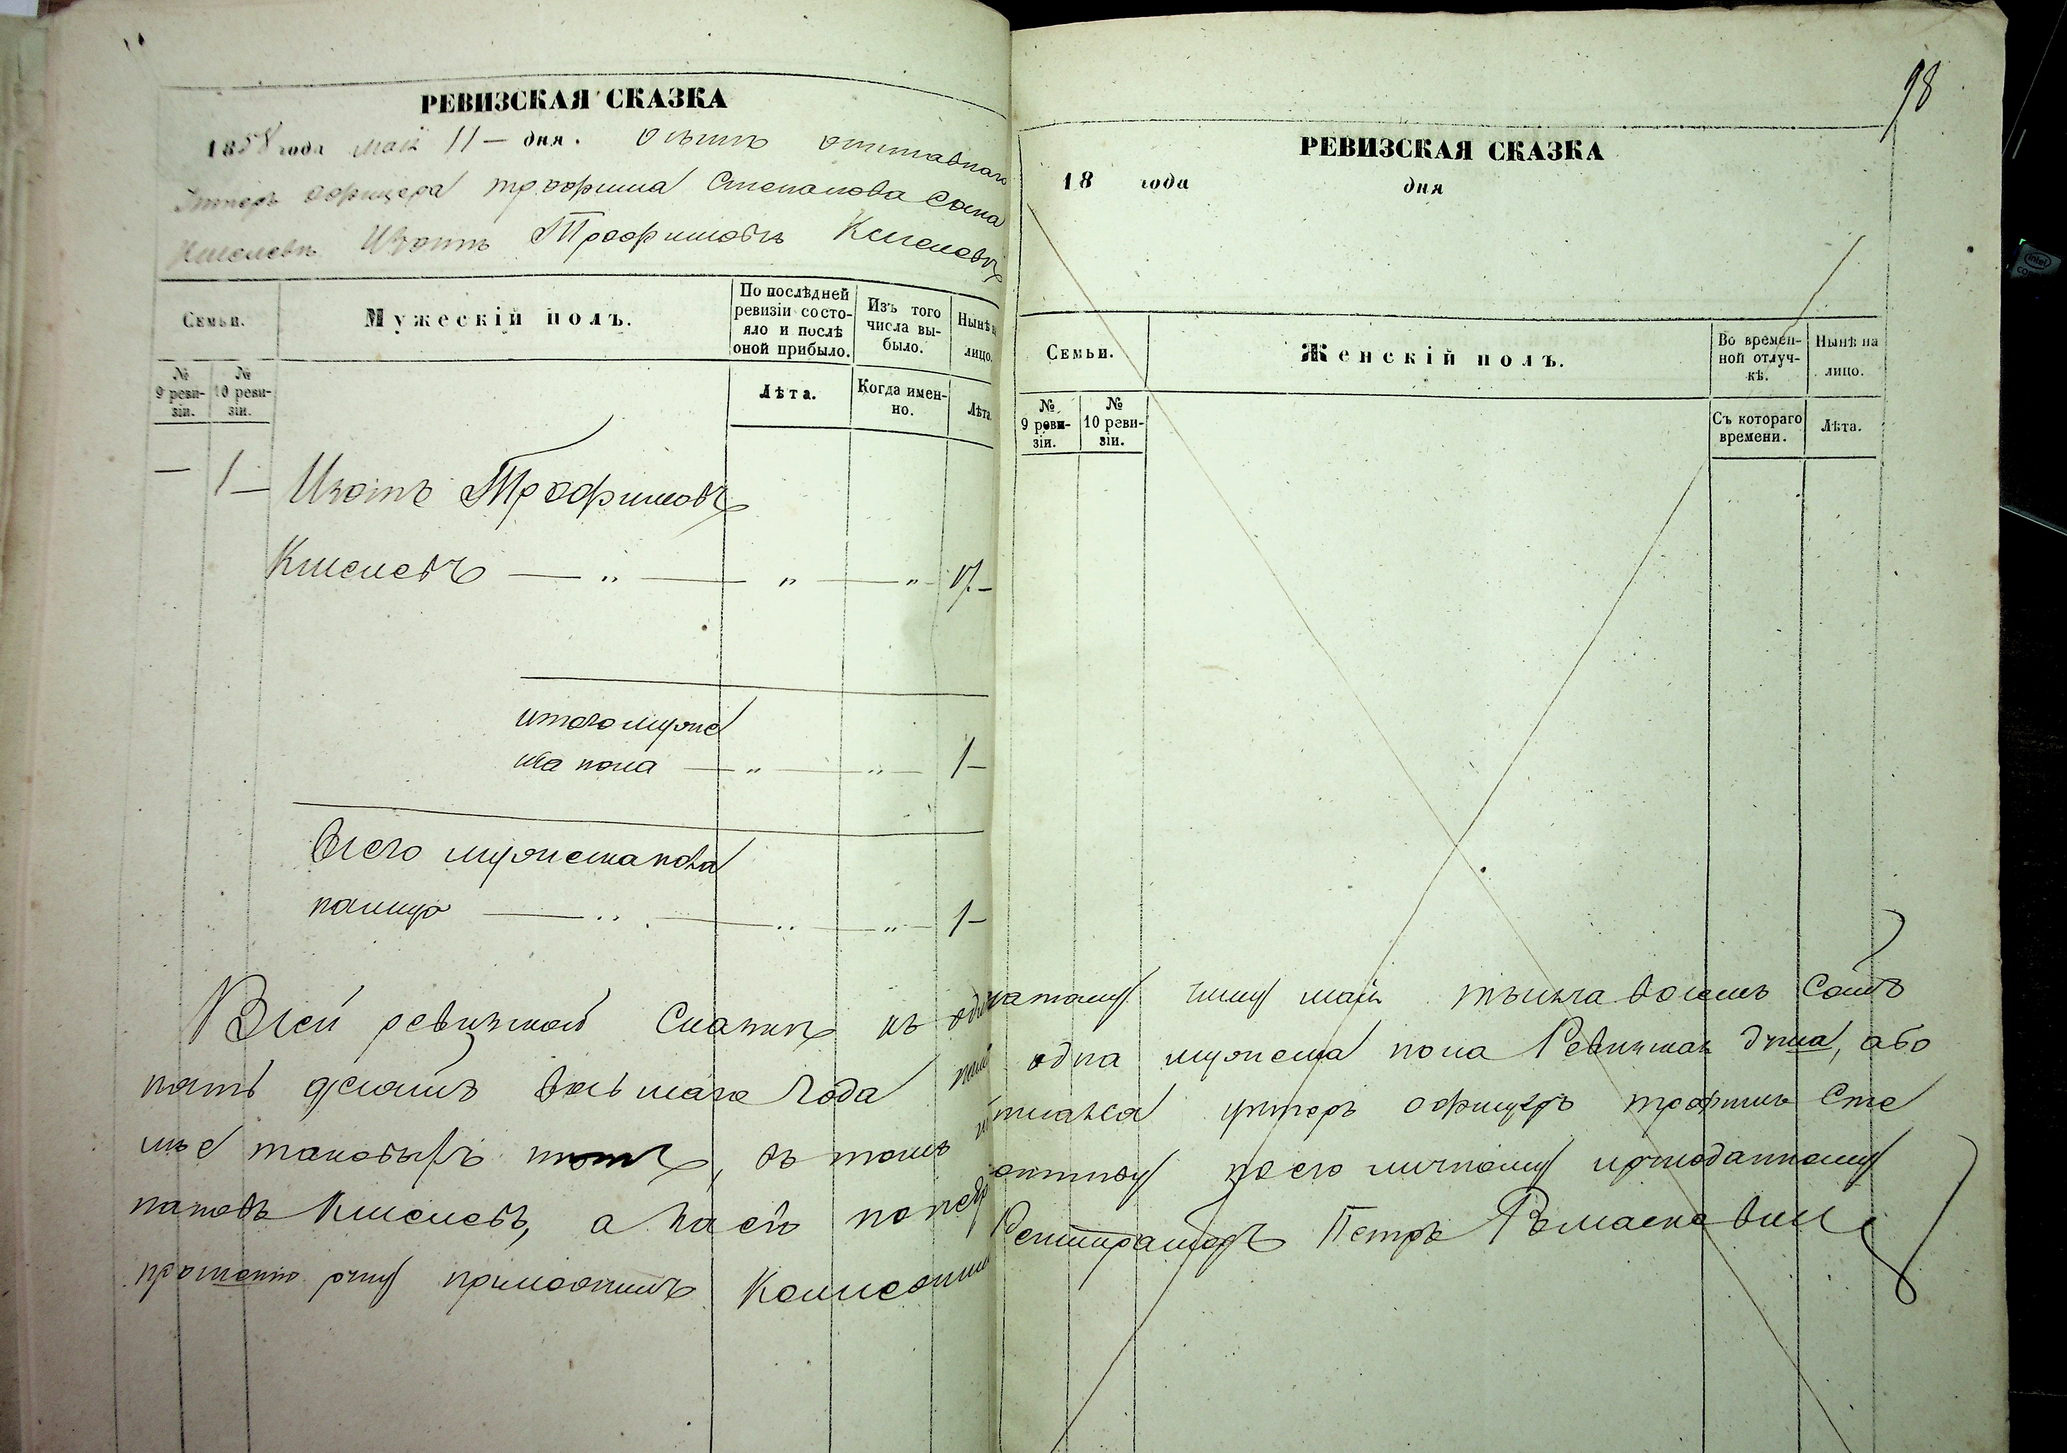 РЕВИЗСКАЯ СКАЗКА
1858 года мая 11 — дня. отставнаго
Унтеръ офицера трофима Степанова Сына
Киселева Изотъ Трофимовъ Киселевъ
Семьи.
Мужескій полъ.
По послѣдней ревизіи состо-
яло и послѣ
оной прибыло.
Изъ того
числа вы-
было.
Нынѣ на
лицо.
№
9 реви-
зіи.
№
10 реви-
зіи.
Лѣта.
Когда имен-
но.
Лѣта.
— 1 — Изотъ Трофимовъ
Киселевъ — „ — „ — „ — 17. —
итого муже
ска пола — „ — „ — 1 —
Всего мужеска пола
налицо — „ — „ — „ — 1 —
98
РЕВИЗСКАЯ СКАЗКА
18 года дня
Семьи.
Женскій полъ.
Во времен-
ной отлуч-
кѣ.
Нынѣ на
лицо.
№
9 реви-
зіи.
№
10 реви-
зіи.
Съ котораго
времени.
Лѣта.
Всей ревизской Сказки къ одинатому числу мая тысяча восемь Сотъ
пять десятъ восьмаго года одна мужеска пола Ревизская душа, а бо
лѣе таковыхъ нѣтъ, въ томъ унтеръ офицеръ трофимъ Сте
пановъ Киселевъ, а за его по личному
прошенію руку приложилъ Колежскій
Регистраторъ Петръ